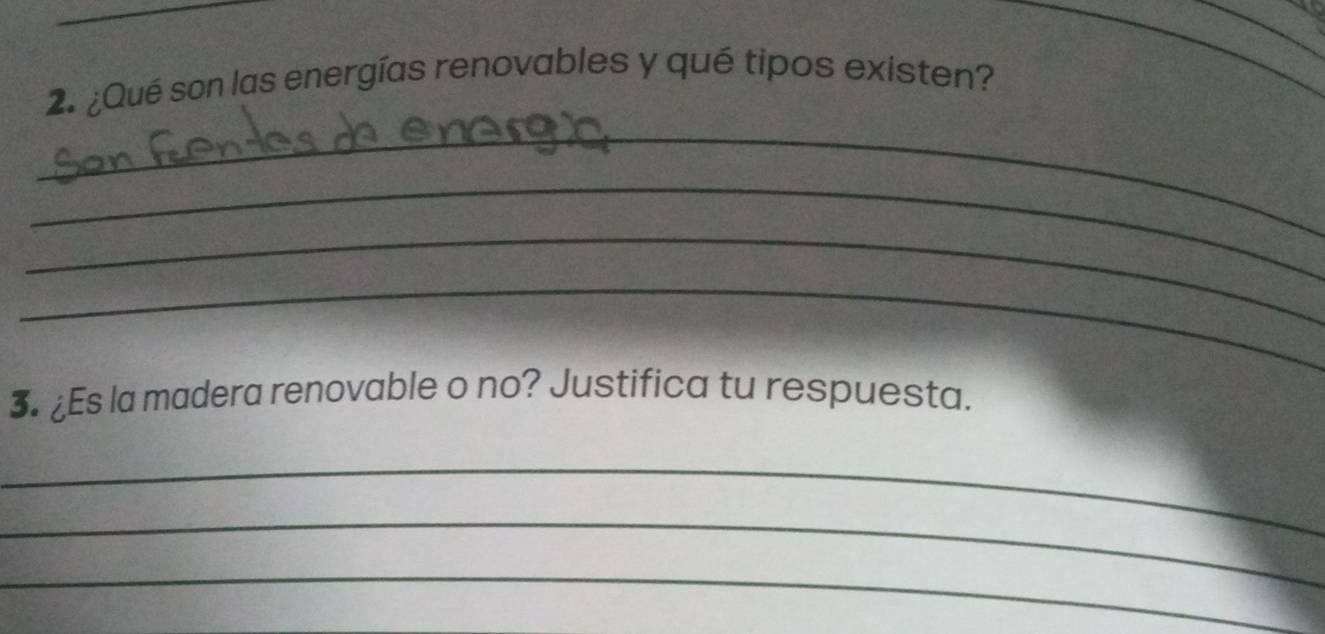 2. ¿Qué son las energías renovables y qué tipos existen?
Son fuentes de energia
3. ¿Es la madera renovable o no? Justifica tu respuesta.